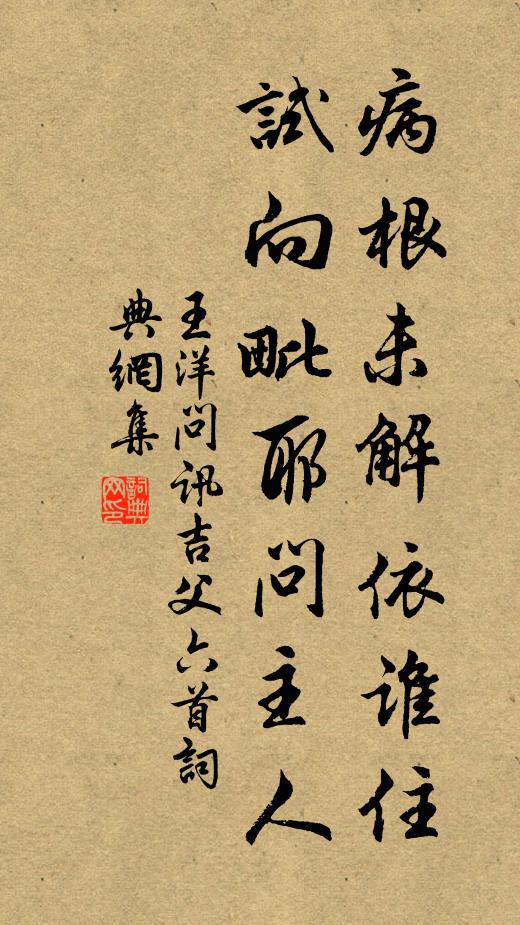 病根未解依谁住
試向毗耶問主人
王洋問訊吉父六首詞
典網集
詞典网印